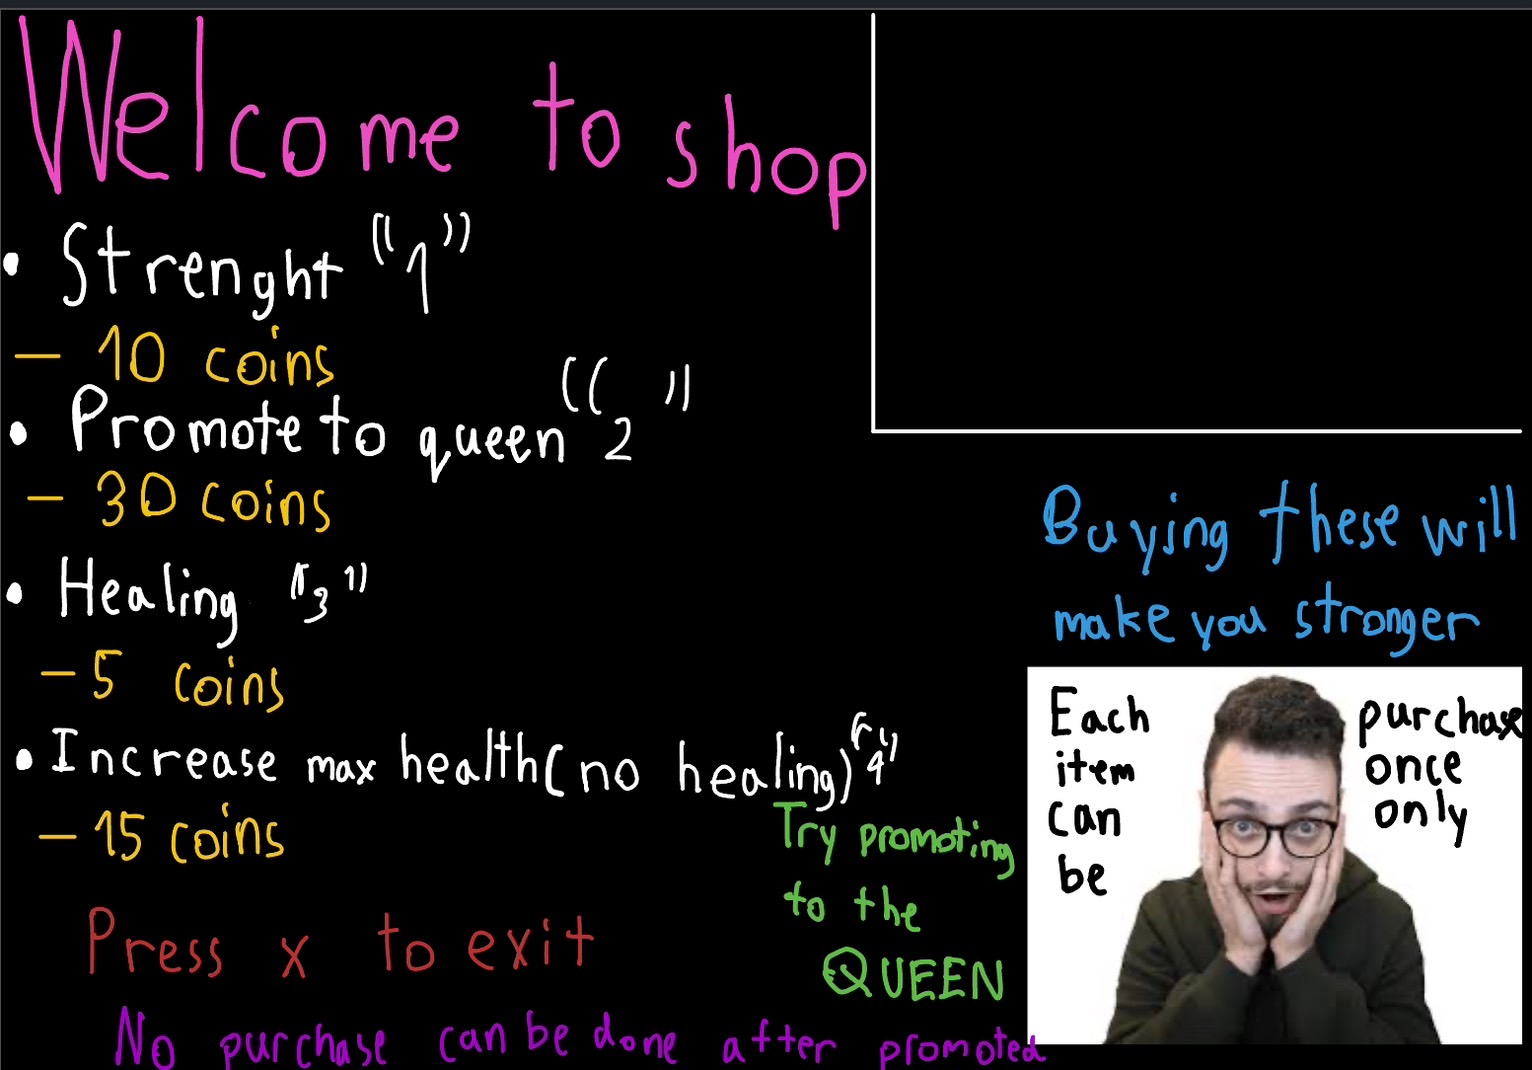 Welcome to shop
• Strenght "1"
- 10 coins
• Promote to queen "2"
- 30 coins
• Healing "3"
- 5 coins
• Increase max health(no healing) "4"
- 15 coins
Press x to exit
No purchase can be done after promoted
Try promoting
to the
QUEEN
Buying these will
make you stronger
Each
item
can
be
purchase
once
only